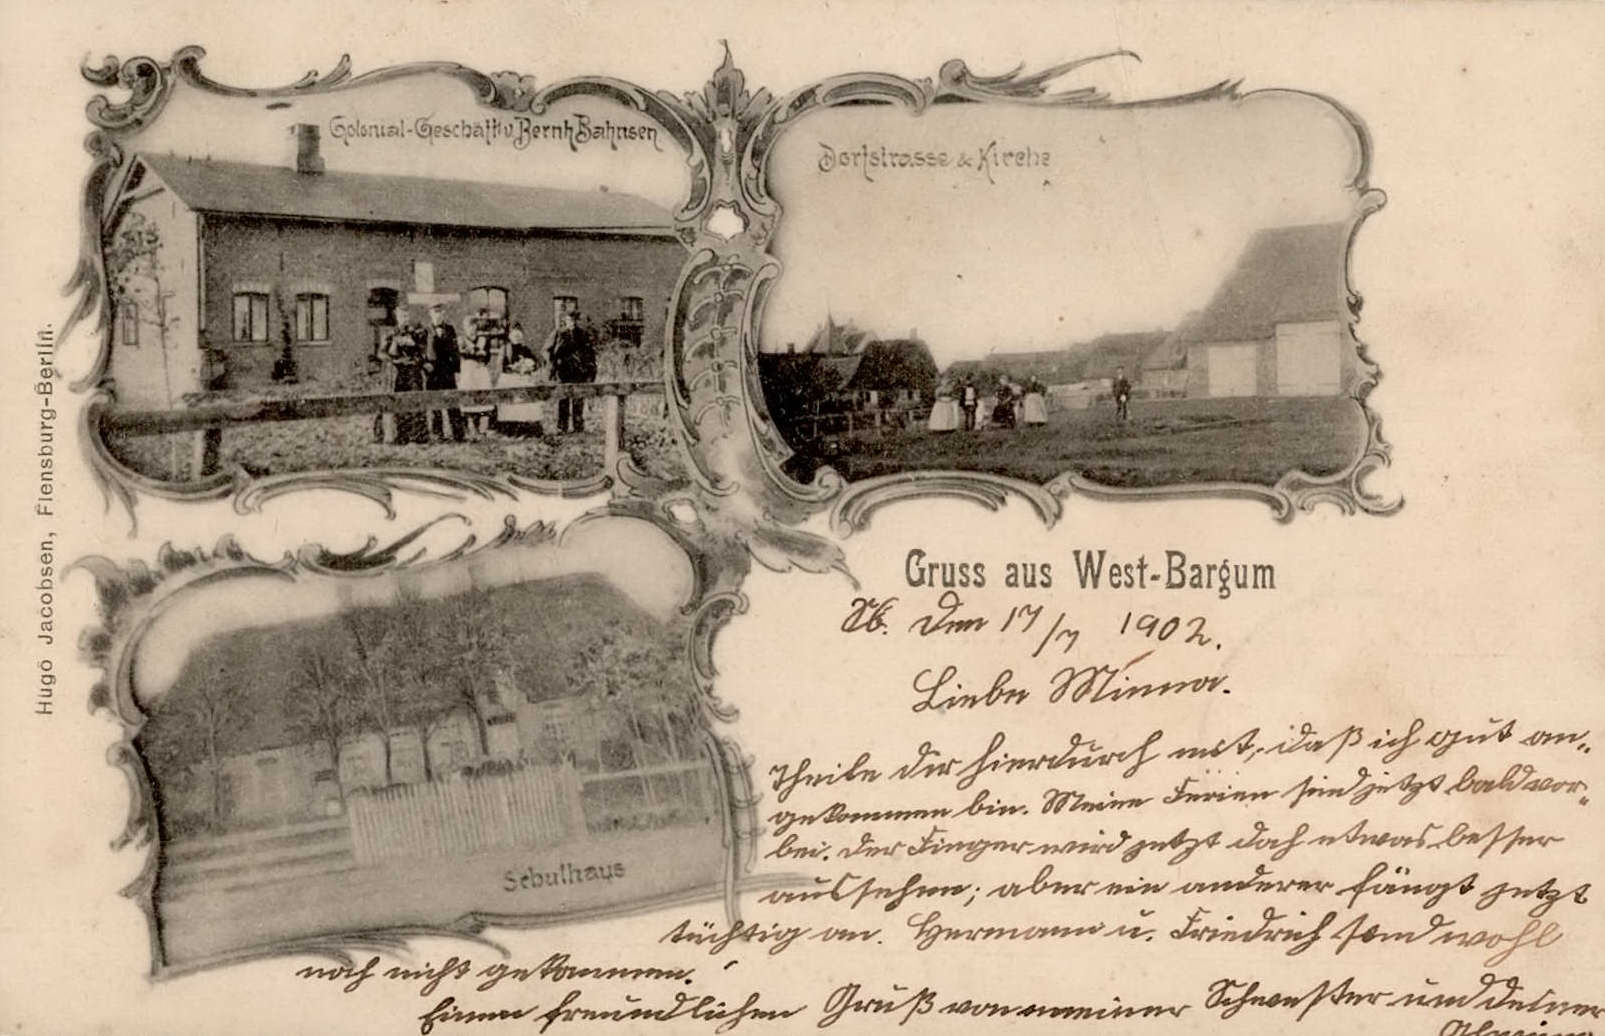 Colonial-Geschäft v. Bernh Bahnsen
Dorfstrasse & Kirche
Hugo Jacobsen, Flensburg-Berlin.
Schulhaus
Gruss aus West-Bargum
den 17/7 1902.
Liebe Minna.
Theile dir hierdurch mit, daß ich gut an-
gekommen bin. Meine Ferien sind jetzt bald vor-
bei. Der Finger wird jetzt doch etwas besser
aussehen; aber ein anderer fängt jetzt
tüchtig an. Hermann u. Friedrich sind wohl
noch nicht gekommen.
Einen freundlichen Gruß von meiner Schwester und deiner